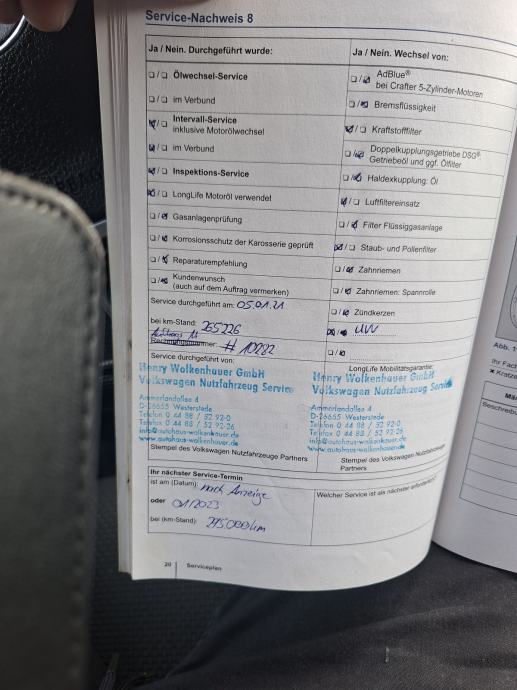 Service-Nachweis 8
Ja / Nein. Durchgeführt wurde:
Ja / Nein. Wechsel von:
Ölwechsel-Service
AdBlue®
bei Crafter 5-Zylinder-Motoren
im Verbund
Bremsflüssigkeit
Intervall-Service
inklusive Motorölwechsel
Kraftstofffilter
im Verbund
Doppelkupplungsgetriebe DSG®
Getriebeöl und ggf. Ölfilter
Inspektions-Service
Haldexkupplung: Öl
LongLife Motoröl verwendet
Luftfiltereinsatz
Gasanlagenprüfung
Filter Flüssiggasanlage
Korrosionsschutz der Karosserie geprüft
Staub- und Pollenfilter
Reparaturempfehlung
Zahnriemen
Kundenwunsch
(auch auf dem Auftrag vermerken)
Zahnriemen: Spannrolle
Service durchgeführt am: 05.01.21
Zündkerzen
bei km-Stand: 265226
UW
# 10282
Service durchgeführt von:
LongLife Mobilitätsgarantie:
Henry Wolkenhauer GmbH
Volkswagen Nutzfahrzeug Service
Ammerlandallee 4
D-26655 Westerstede
Telefon 0 44 88 / 52 92-0
Telefax 0 44 88 / 52 92-26
info@autohaus-wolkenhauer.de
www.autohaus-wolkenhauer.de
Henry Wolkenhauer GmbH
Volkswagen Nutzfahrzeug Service
Ammerlandallee 4
D-26655 Westerstede
Telefon 0 44 88 / 52 92-0
Telefax 0 44 88 / 52 92-26
info@autohaus-wolkenhauer.de
www.autohaus-wolkenhauer.de
Stempel des Volkswagen Nutzfahrzeuge Partners
Stempel des Volkswagen Nutzfahrzeuge
Partners
Ihr nächster Service-Termin
ist am (Datum): nach Anzeige
Welcher Service ist als nächster erforderlich?
oder 01/2023
bei (km-Stand): 295.000 km
20 Serviceplan
Abb. 1
Ihr Fach
× Kratze